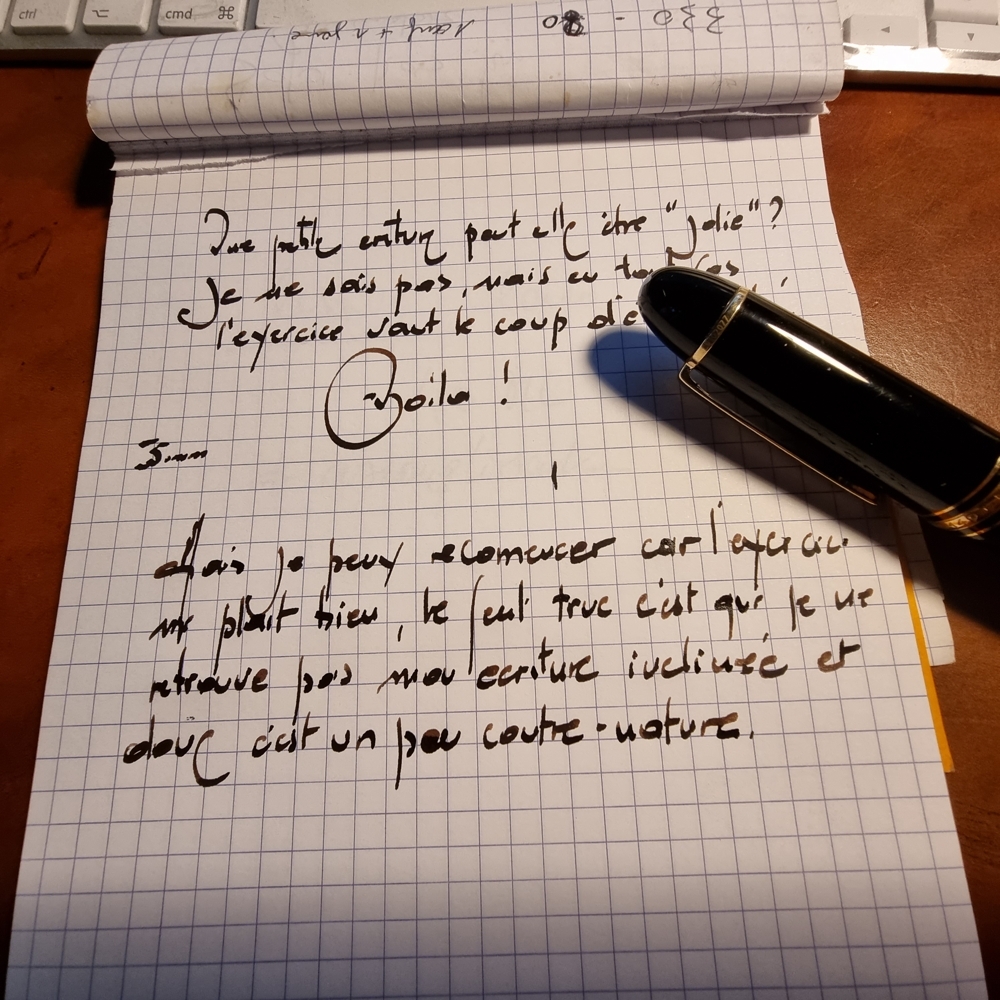 ctrl ⌥ cmd ⌘
330 - 20
Une petite ecriture peut elle être "jolie"?
Je ne sais pas, mais en tout cas
l'exercice vaut le coup d'e
Voila !
Mais je peux recomencer car l'exercice
me plait bien, le seul truc c'est que je ne
retrouve pas mon ecriture inclinée et
donc c'est un peu contre-nature.